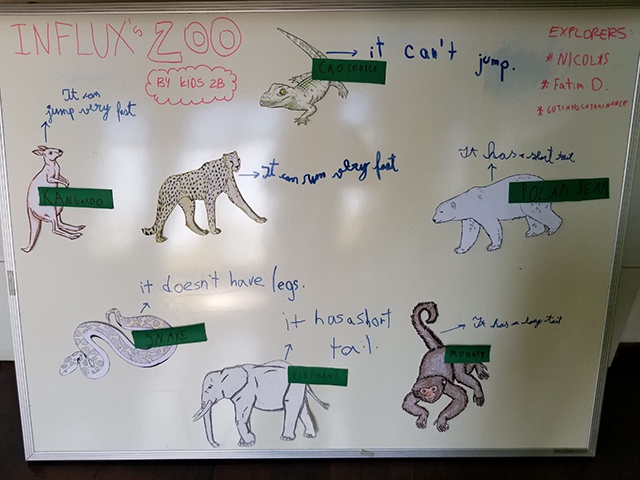 INFLUX's ZOO
BY KIDS 2B
EXPLORERS:
* NICOLAS
* Fatim D.
CROCODILE
it can't jump.
It can
jump very fast
KANGAROO
It can run very fast
It has a short tail
POLAR BEAR
it doesn't have legs.
SNAKE
it has a short
tail.
ELEPHANT
It has a long tail
MONKEY